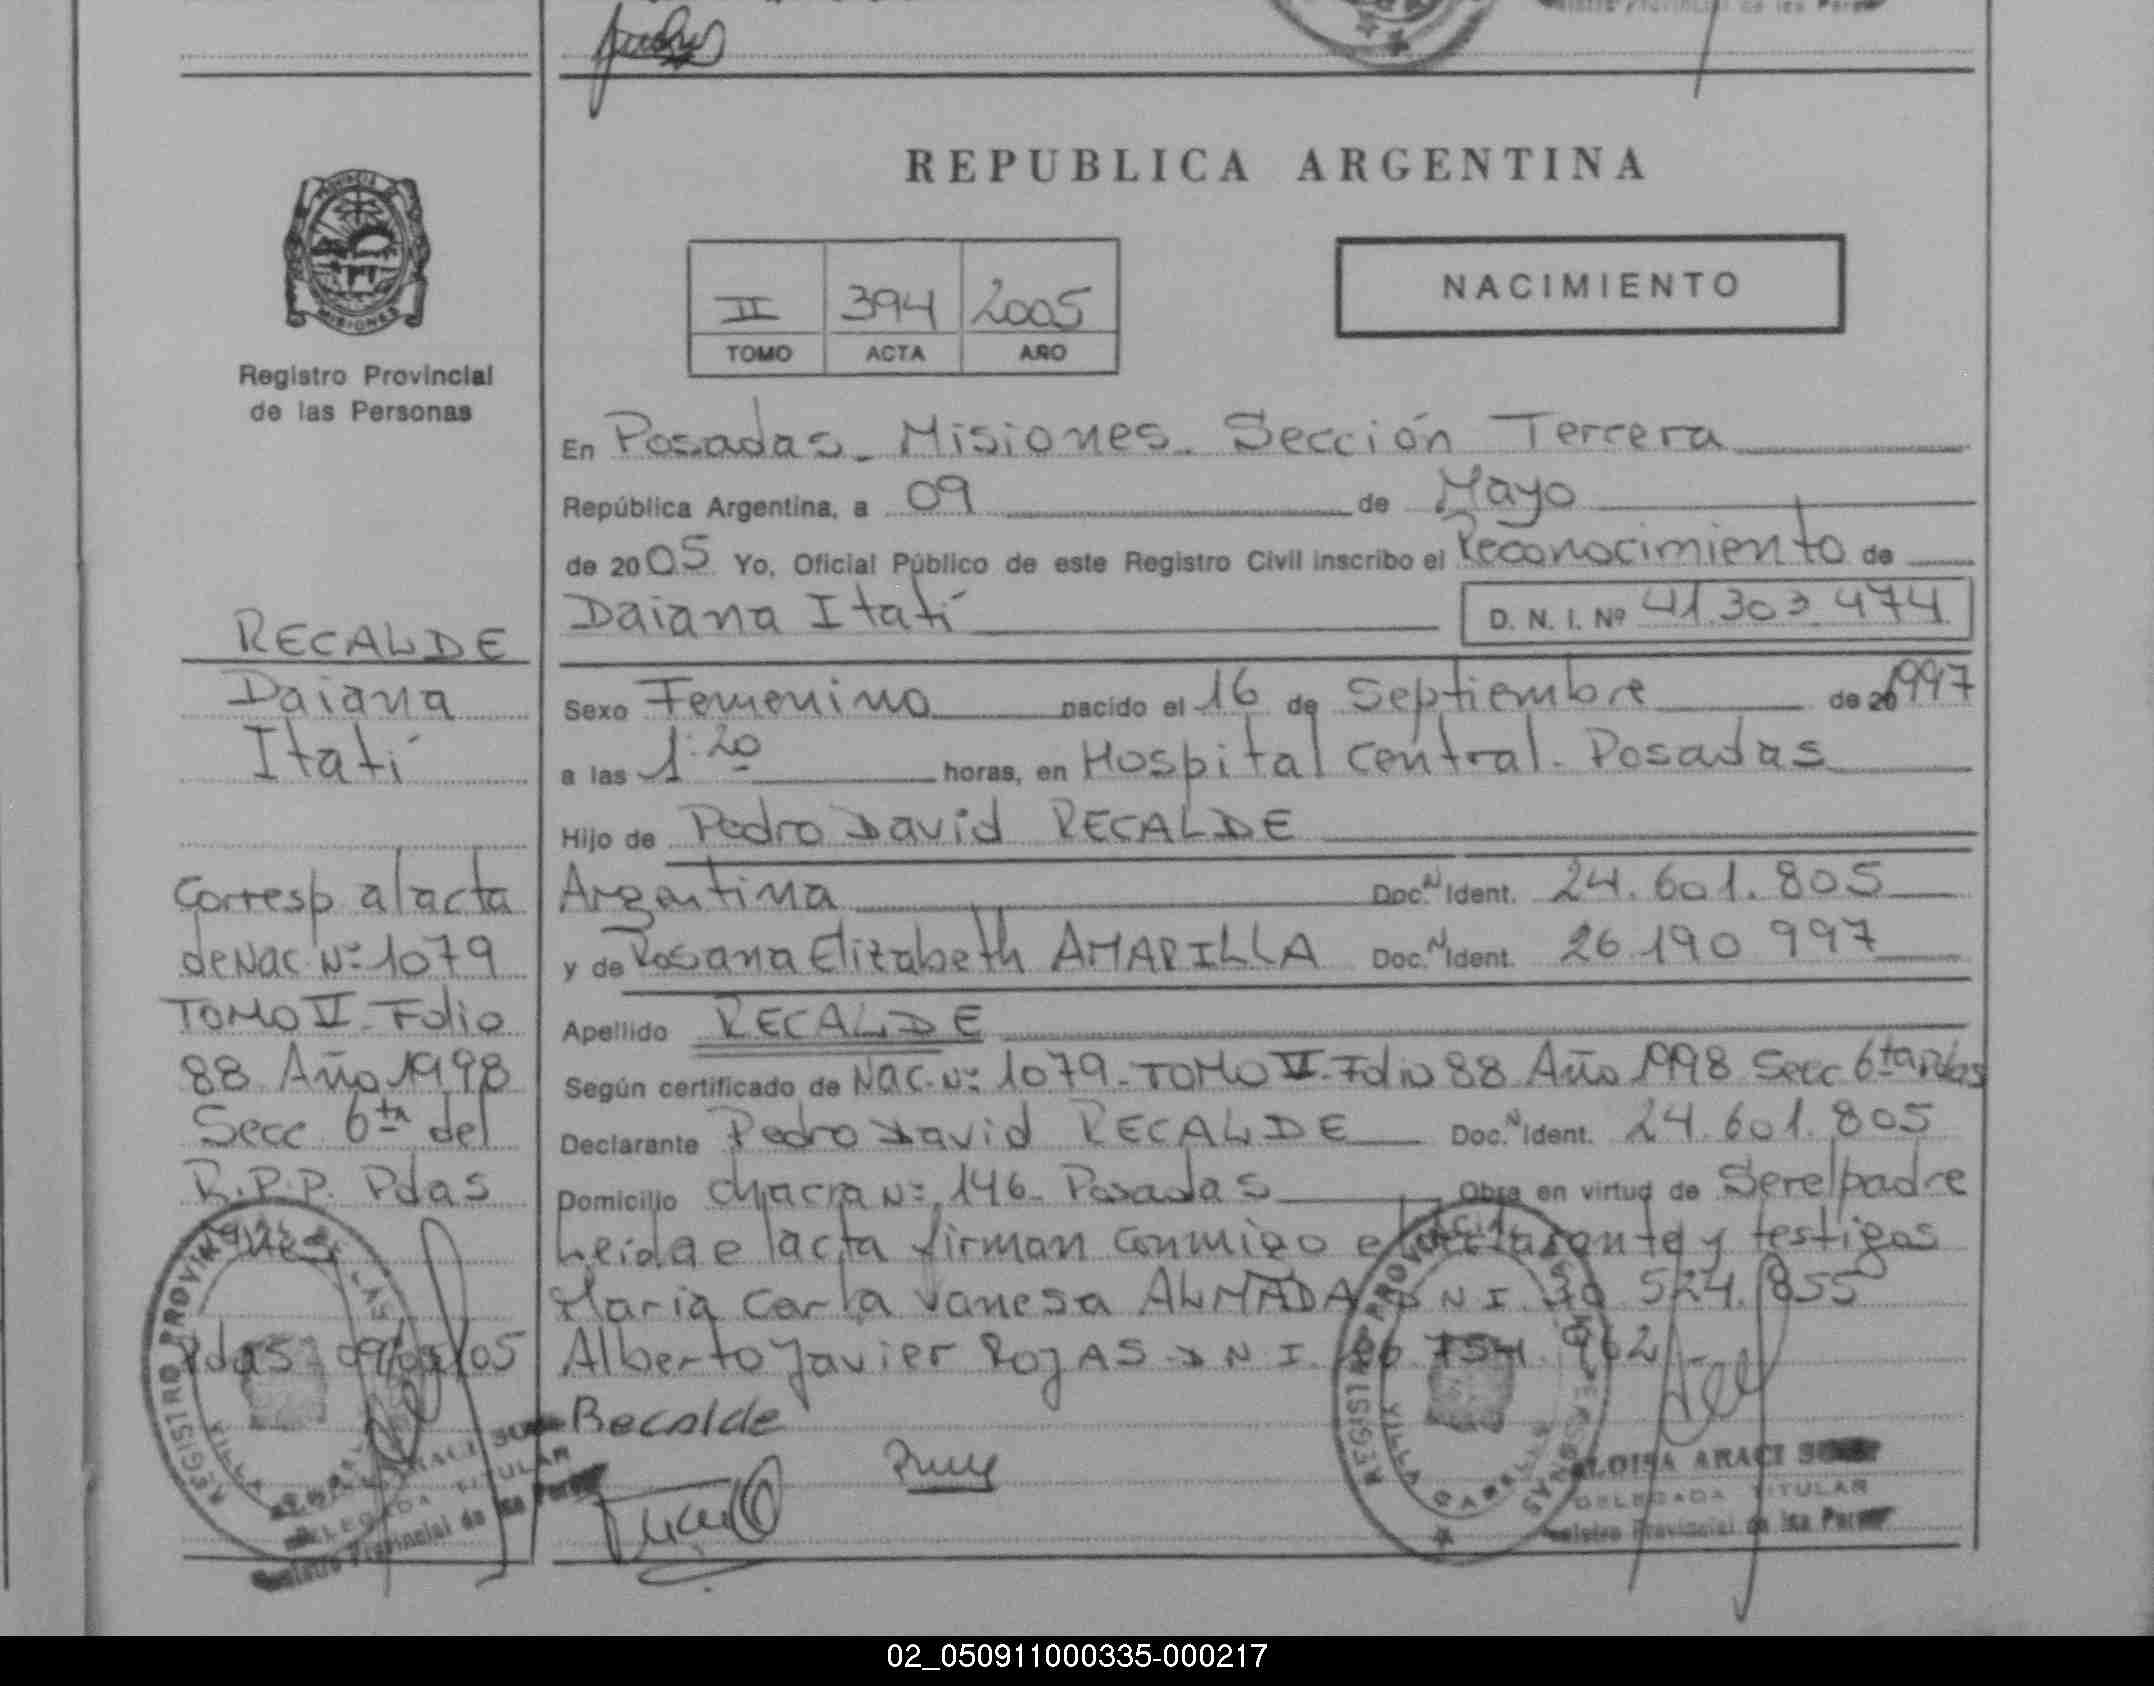 REPUBLICA ARGENTINA
PROVINCIA DE
MISIONES
Registro Provincial
de las Personas
II 394 2005
TOMO ACTA AÑO
NACIMIENTO
En Posadas - Misiones - Sección Tercera
República Argentina, a 09 de Mayo
de 2005 Yo, Oficial Público de este Registro Civil inscribo el Reconocimiento de
Daiana Itatí
D. N. I. Nº 41.303.474
Sexo Femenino nacido el 16 de Septiembre de 1997
a las 1:20 horas, en Hospital Central - Posadas
Hijo de Pedro David RECALDE
Argentina Doc.N Ident. 24.601.805
y de Rosana Elizabeth AMARILLA Doc.N Ident. 26.190.997
Apellido RECALDE
Según certificado de Nac. Nº 1079 - TOMO II - Folio 88 Año 1998 Secc 6ta Pdas
Declarante Pedro David RECALDE Doc.N Ident. 24.601.805
Domicilio chacra Nº 146 - Posadas Obra en virtud de Ser el padre
Leida el acta firman conmigo el declarante y testigos
Maria Carla Vanesa ALMADA D N I 30 524.855
Alberto Javier ROJAS D N I 962
Recalde
RECALDE
Daiana
Itatí
Corresp al acta
de Nac. Nº 1079
TOMO II - Folio
88 Año 1998
Secc 6ta del
R.P.P. Pdas
Pdas 09/05/05
REGISTRO PROVINCIAL DE LAS
VILLA
DELEGADA TITULAR
Registro Provincial de las
REGISTRO PROVINCIAL
VILLA CABELLO
ARACI
DELEGADA TITULAR
Registro Provincial de las
02_050911000335-000217